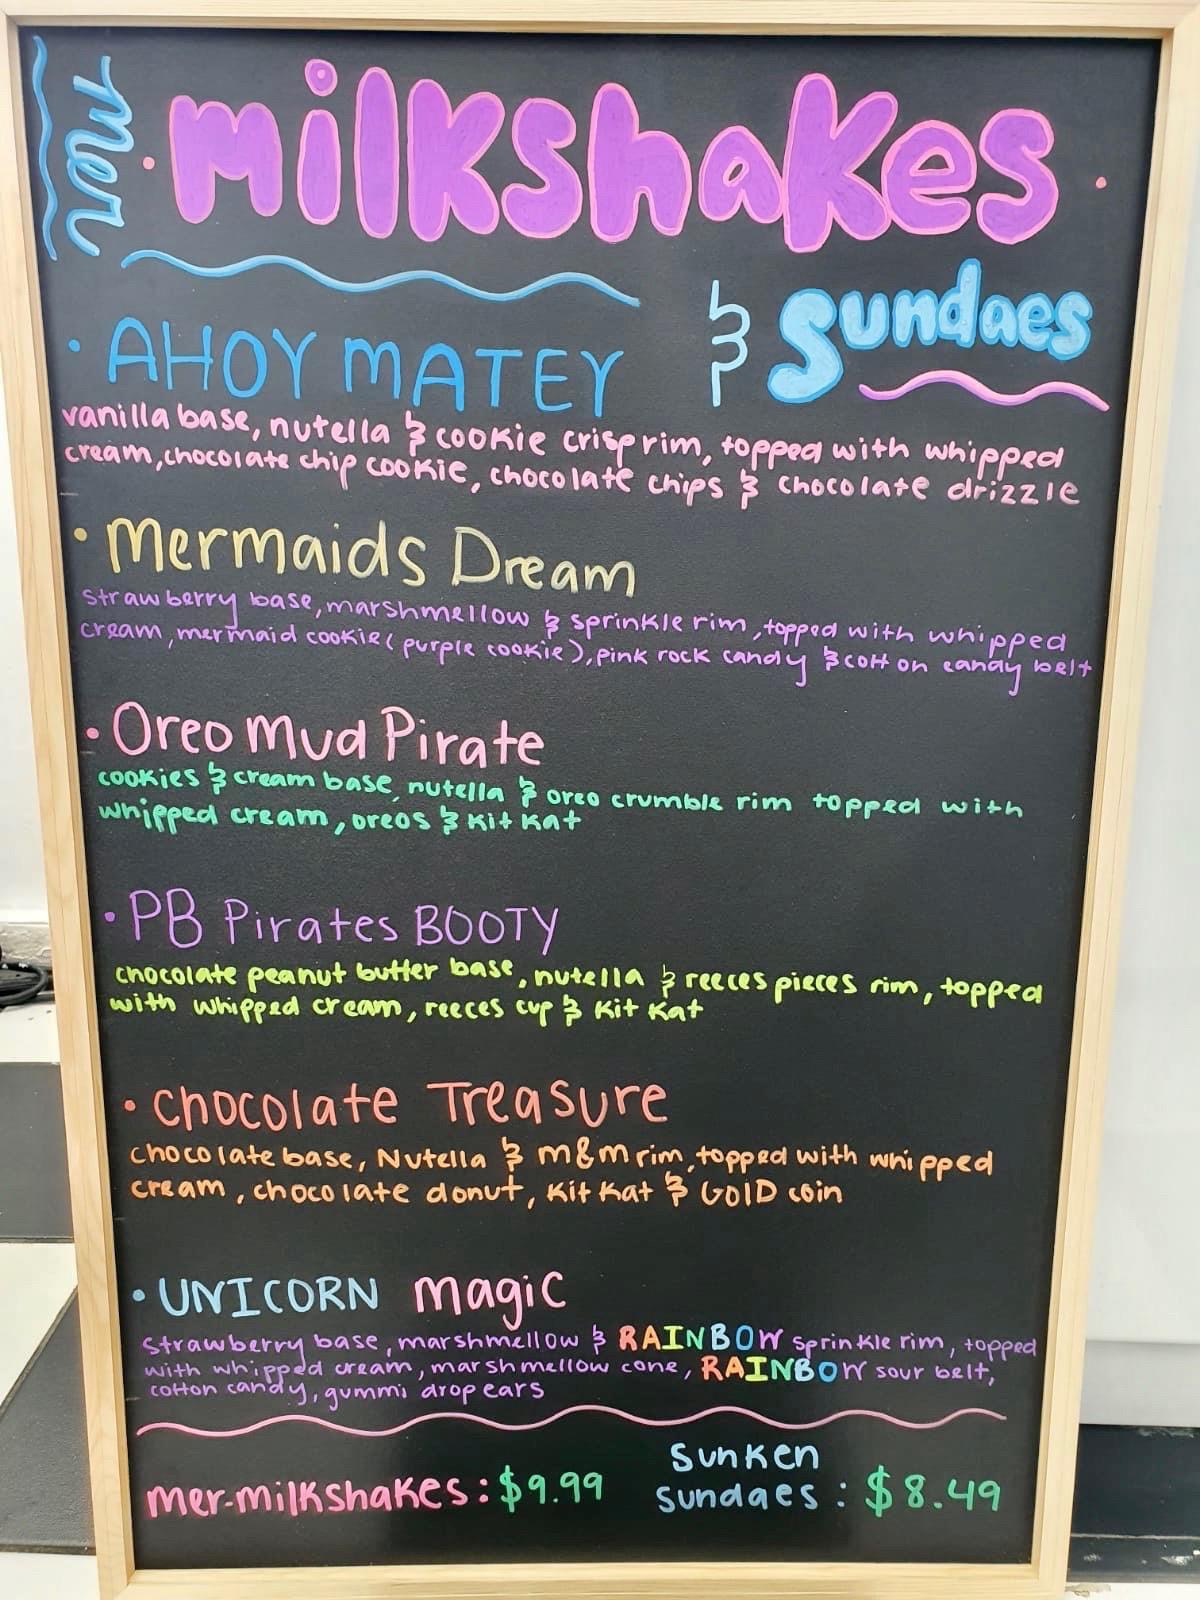 Mer
milkshakes
& Sundaes
AHOY MATEY
vanilla base, nutella & cookie crisp rim, topped with whipped
cream, chocolate chip cookie, chocolate chips & chocolate drizzle
Mermaids Dream
strawberry base, marshmellow & sprinkle rim, topped with whipped
cream, mermaid cookie (purple cookie), pink rock candy & cotton candy belt
Oreo Mud Pirate
cookies & cream base, nutella & oreo crumble rim topped with
whipped cream, oreos & Kit Kat
PB Pirates BOOTY
chocolate peanut butter base, nutella & reeces pieces rim, topped
with whipped cream, reeces cup & Kit Kat
Chocolate Treasure
chocolate base, Nutella & m&m rim, topped with whipped
cream, chocolate donut, Kit Kat & GOlD coin
UNICORN magic
strawberry base, marshmellow & RAINBOW sprinkle rim, topped
with whipped cream, marshmellow cone, RAINBOW sour belt,
cotton candy, gummi drop ears
mer-milkshakes: $9.99
Sunken
sundaes: $8.49